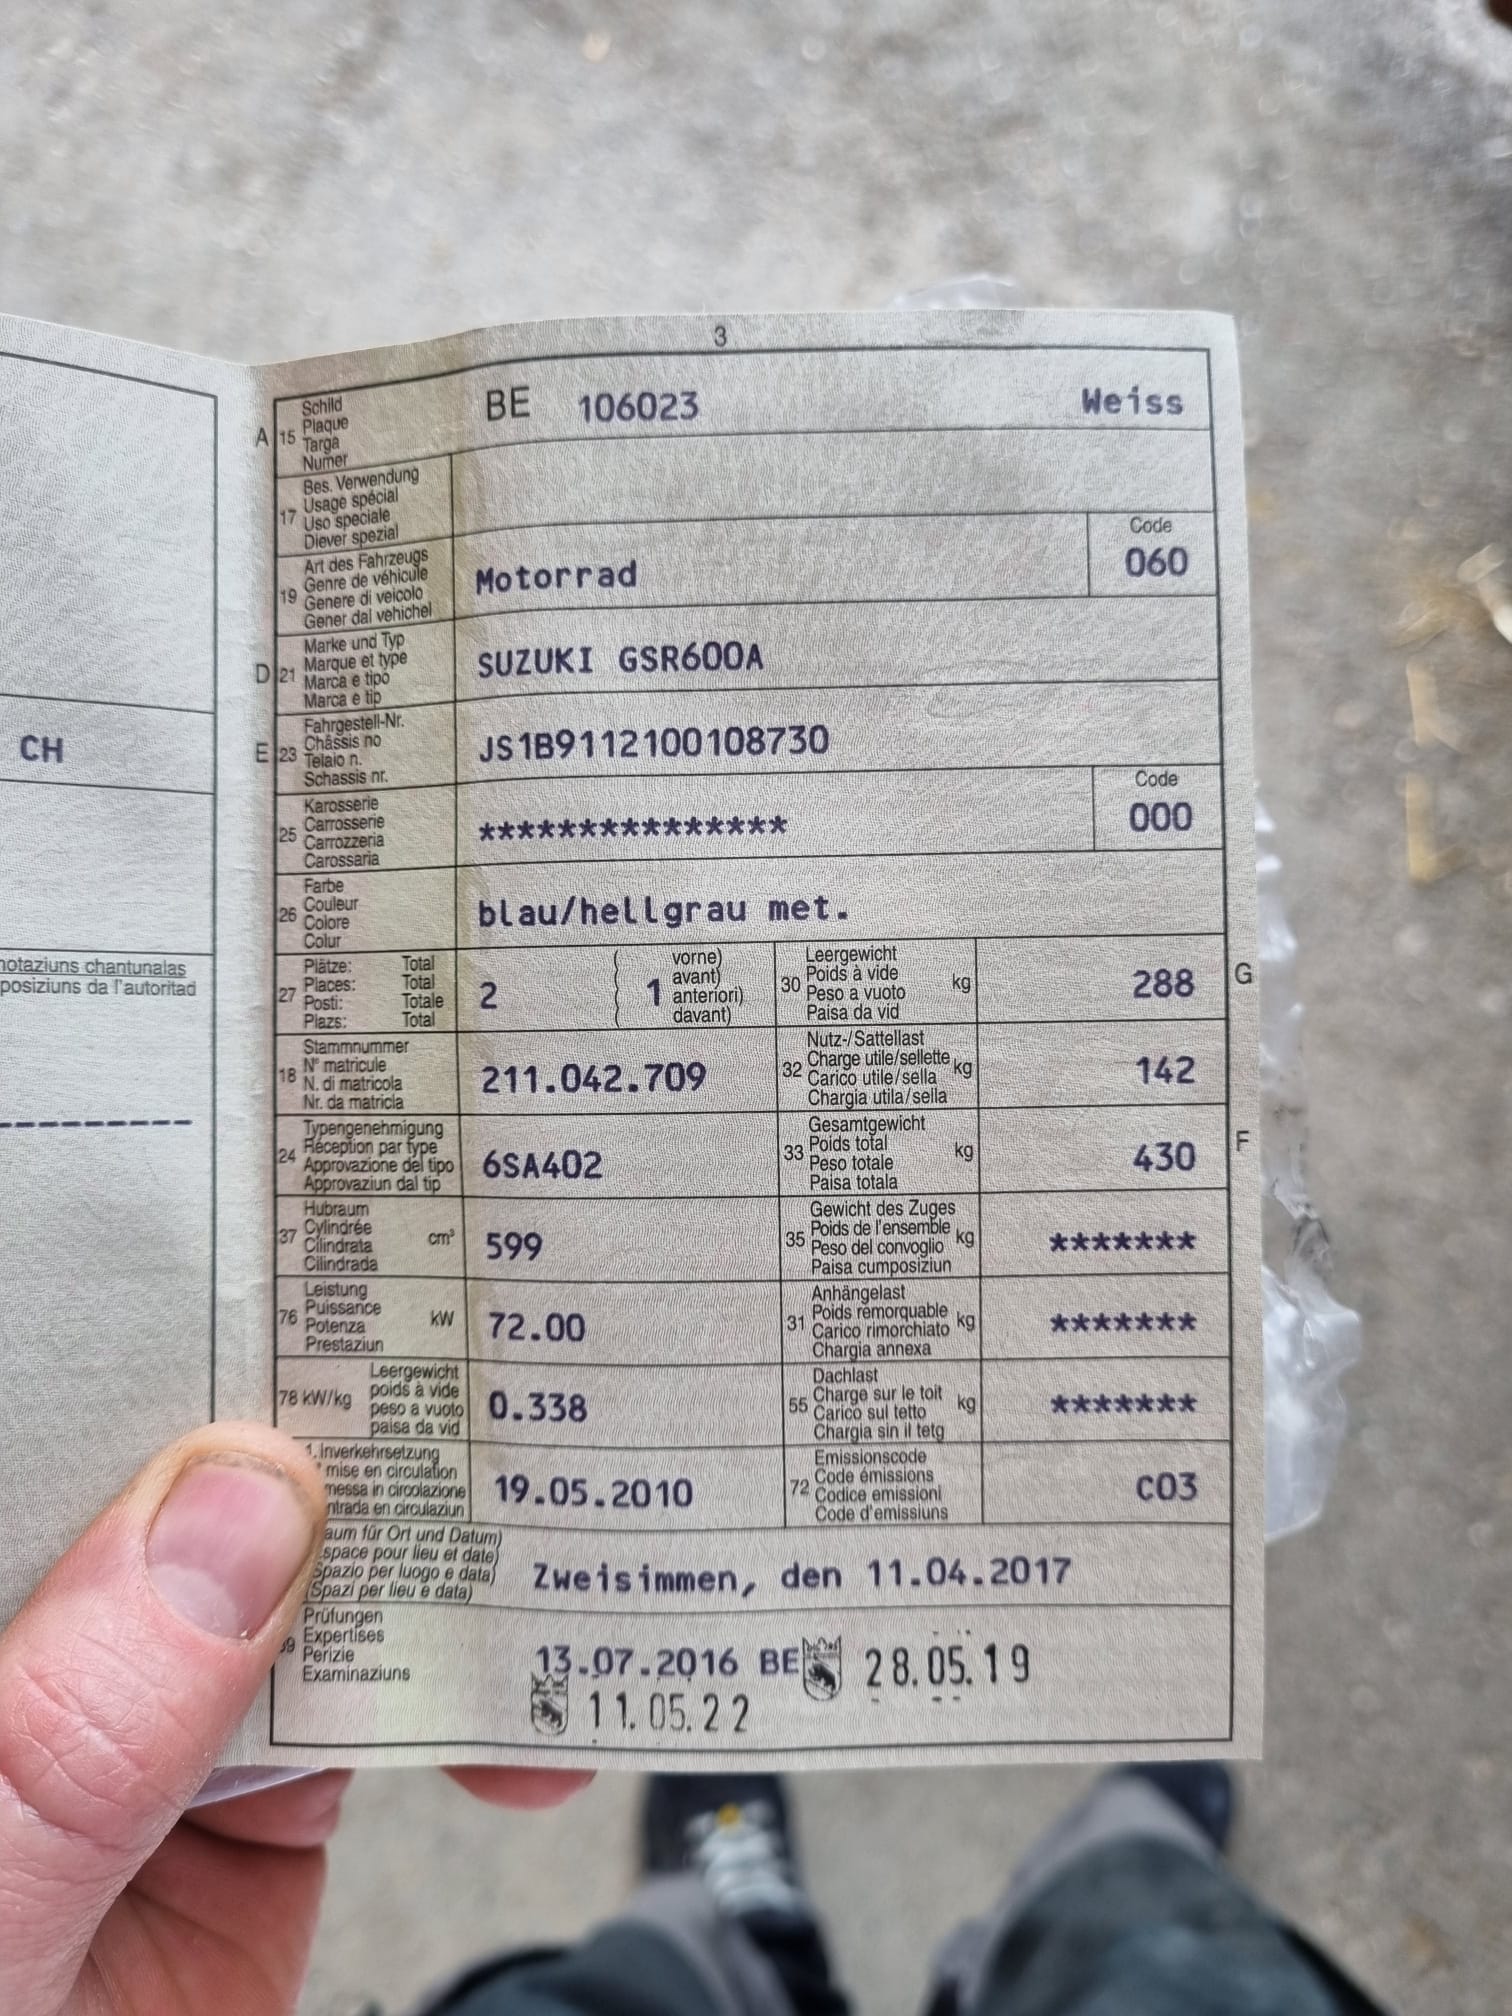 3
A 15 Schild BE 106023 Weiss
Plaque
Targa
Numer
17 Bes. Verwendung
Usage spécial
Uso speciale
Diever spezial
19 Art des Fahrzeugs Motorrad Code
Genre de véhicule 060
Genere di veicolo
Gener dal vehichel
D 21 Marke und Typ SUZUKI GSR600A
Marque et type
Marca e tipo
Marca e tip
CH
E 23 Fahrgestell-Nr. JS1B9112100108730
Châssis no
Telaio n.
Schassis nr.
25 Karosserie **************** Code
Carrosserie 000
Carrozzeria
Carossaria
26 Farbe blau/hellgrau met.
Couleur
Colore
Colur
notaziuns chantunalas
posiziuns da l'autoritad
27 Plätze: Total 2 ( 1 vorne)
Places: Total avant)
Posti: Totale anteriori)
Plazs: Total davant)
30 Leergewicht kg 288 G
Poids à vide
Peso a vuoto
Paisa da vid
18 Stammnummer 211.042.709
N° matricule
N. di matricola
Nr. da matricla
32 Nutz-/Sattellast kg 142
Charge utile/sellette
Carico utile/sella
Chargia utila/sella
24 Typengenehmigung 6SA402
Réception par type
Approvazione del tipo
Approvaziun dal tip
33 Gesamtgewicht kg 430 F
Poids total
Peso totale
Paisa totala
37 Hubraum cm³ 599
Cylindrée
Cilindrata
Cilindrada
35 Gewicht des Zuges kg *******
Poids de l'ensemble
Peso del convoglio
Paisa cumposiziun
76 Leistung kW 72.00
Puissance
Potenza
Prestaziun
31 Anhängelast kg *******
Poids remorquable
Carico rimorchiato
Chargia annexa
78 kW/kg Leergewicht 0.338
poids à vide
peso a vuoto
paisa da vid
55 Dachlast kg *******
Charge sur le toit
Carico sul tetto
Chargia sin il tetg
1. Inverkehrsetzung 19.05.2010
mise en circulation
messa in circolazione
ntrada en circulaziun
72 Emissionscode C03
Code émissions
Codice emissioni
Code d'emissiuns
aum für Ort und Datum) Zweisimmen, den 11.04.2017
space pour lieu et date)
Spazio per luogo e data)
(Spazi per lieu e data)
39 Prüfungen 13.07.2016 BE 28.05.19
Expertises 11.05.22
Perizie
Examinaziuns